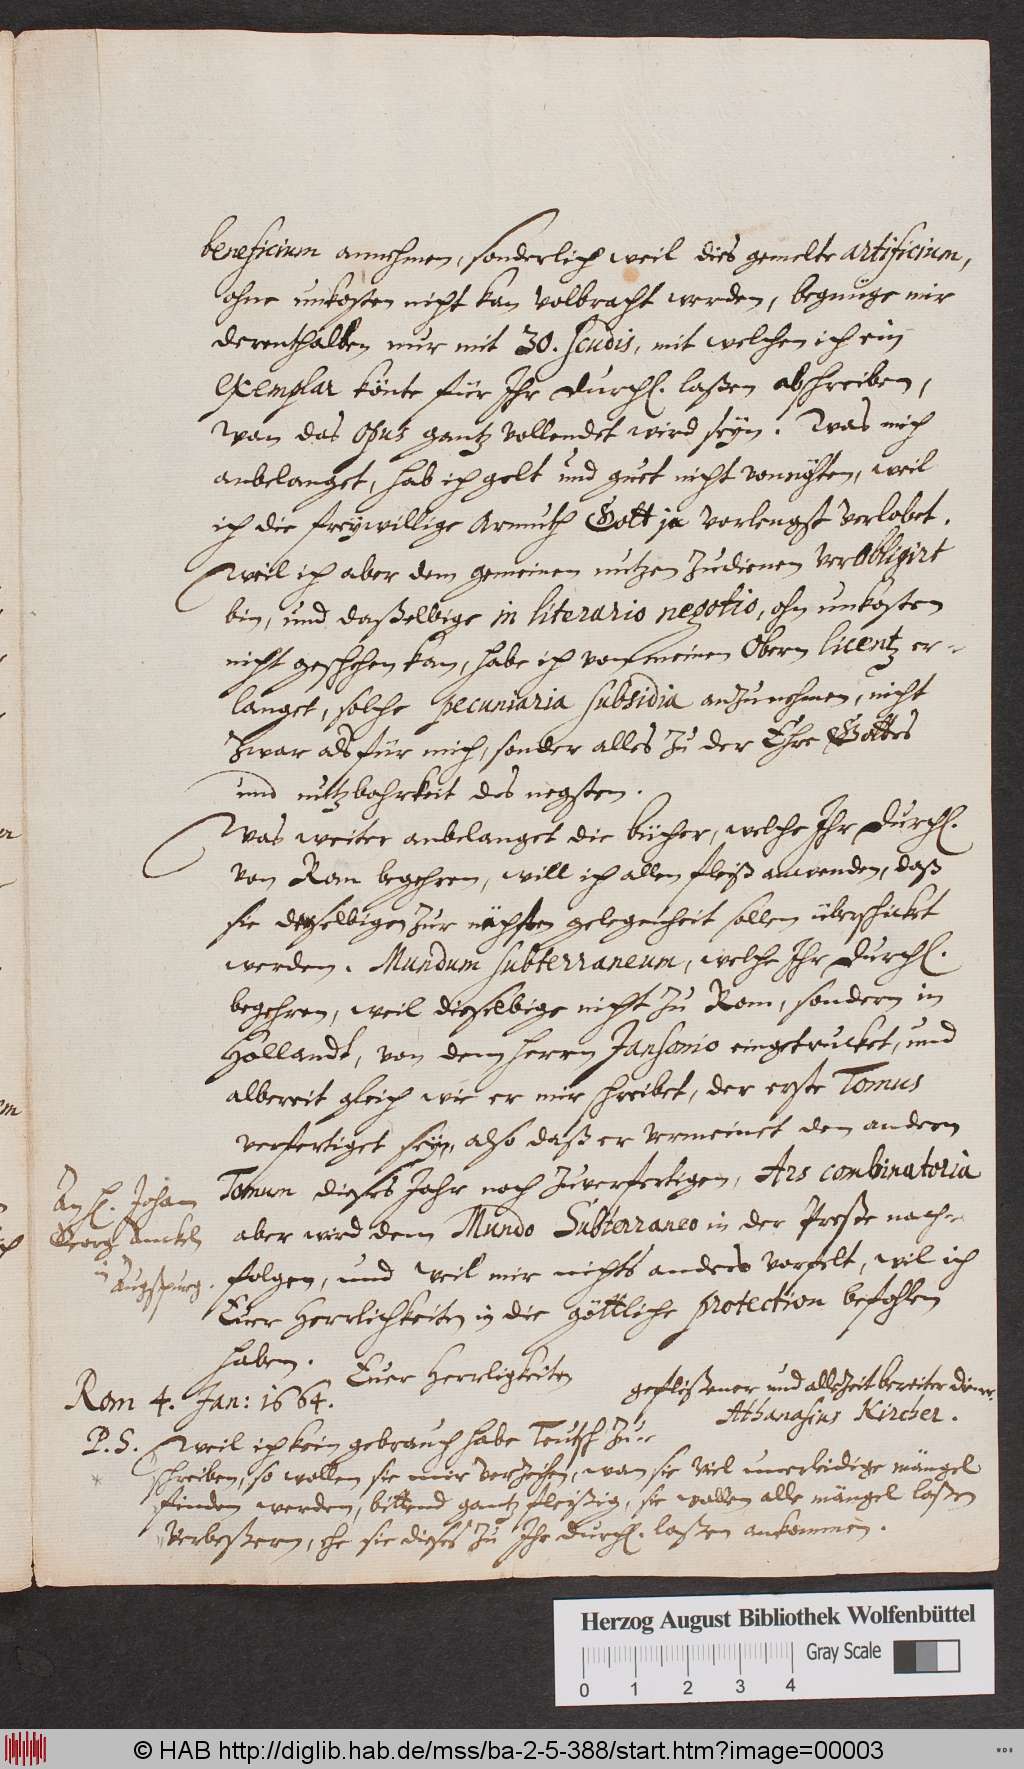 beneficium annehmen, sonderlich weil dies gemelte artificium,
ohne unkosten nicht kan volbracht werden, begnüge mir
derenthalben nur mit 30. scudis, mit welchen ich ein
exemplar könte für Ihr Durchl. laßen abschreiben,
wan das opus gantz vollendet wird seÿn. Was mich
anbelanget, hab ich gelt und guet nicht vonnöhten, weil
ich die freÿwillige Armuth Gott ja vorlengst verlobet.
Weil ich aber dem gemeinen nutzen zudienen verobligirt
bin, und daßelbige in literario negotio, ohn unkosten
nicht geschehen kan, habe ich von meinen Obern licentz er-
langet, solche pecuniaria subsidia anzunehmen, nicht
zwar als für mich, sonder alles zu der Ehre Gottes
und nutzbahrkeit des negsten.
Was weiter anbelanget die bücher, welche Ihr Durchl.
von Rom begehren, will ich allen fleiß anwenden, daß
sie derselbigen zur nächsten gelegenheit sollen überschicket
werden. Mundum subterraneum, welche Ihr Durchl.
begehren, weil dieselbige nicht zu Rom, sondern in
Hollandt, von dem herrn Jansonio eingetrucket, und
albereit gleich wie er mir schreibet, der erste Tomus
verfertiget seÿn, also daß er vermeinet den andern
Tomum dieses Jahr noch zuverfertigen, Ars combinatoria
aber wird dem Mundo Subterraneo in der Preße nach-
folgen, und weil mir nichts anders vorfelt, wil ich
Euer Herrlichkeiten in die göttliche protection befohlen
haben.
Euer Herrligkeiten
geflißener und allezeit bereiter diener
Athanasius Kircher.
Rom 4. Jan: 1664.
P.S. Weil ich kein gebrauch habe Teutsch zu-
schreiben, so wollen sie mir verzeihen, wan sie viel unerleidige mängel
finden werden, bittend gantz fleißig, sie wollen alle mängel laßen
verbeßern, ehe sie dieses zu Ihr Durchl. laßen ankommen.
An H. Johan
Georg Anckel
in Augspurg.
Herzog August Bibliothek Wolfenbüttel
Gray Scale
0 1 2 3 4
© HAB http://diglib.hab.de/mss/ba-2-5-388/start.htm?image=00003